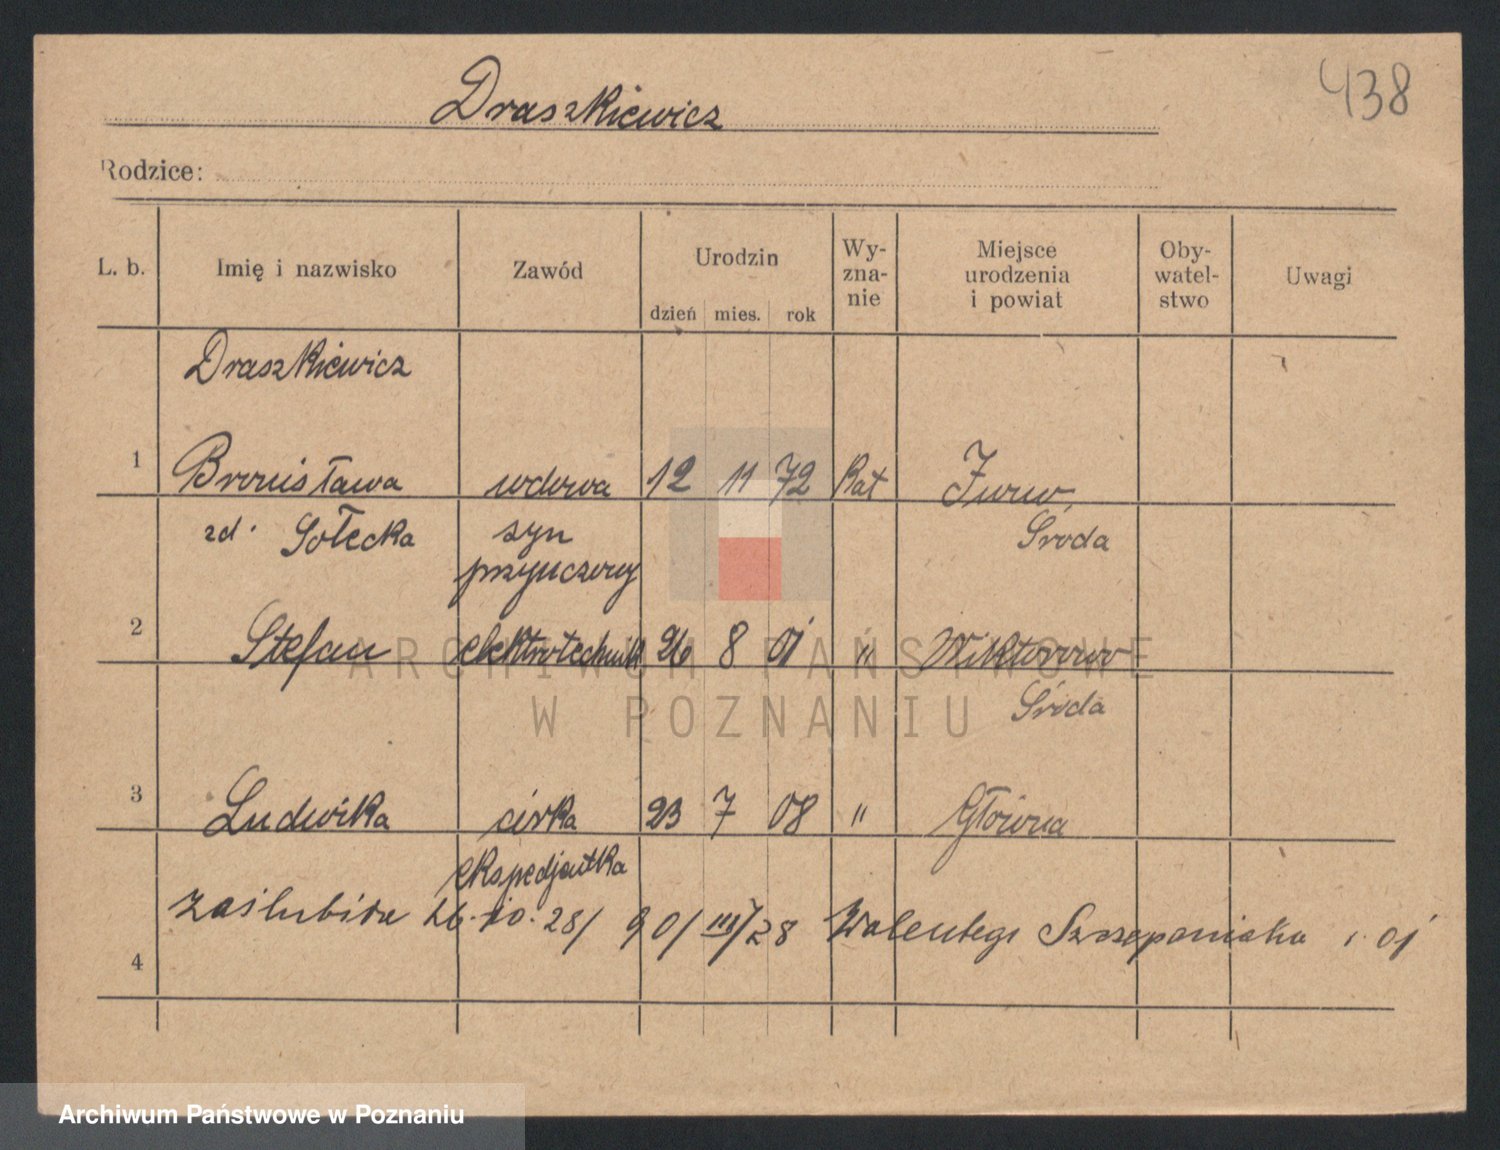 438
Draszkiewicz
Rodzice:
L. b. Imię i nazwisko Zawód Urodzin dzień mies. rok Wy-zna-nie Miejsce urodzenia i powiat Oby-watel-stwo Uwagi
Draszkiewicz
1 Bronisława wdowa 12 11 72 Kat
zd. Sołecka Środa
syn
przyuczony
2 Stefan elektrotechnik 26 8 01 " Wiktorowo
Środa
3 Ludwika córka 23 7 08 " Główna
ekspedjentka
zaślubiła 26. 10. 28/ 90/ III/28 Walentego Szczepaniaka 01
4
ARCHIWUM PAŃSTWOWE
W POZNANIU
Archiwum Państwowe w Poznaniu